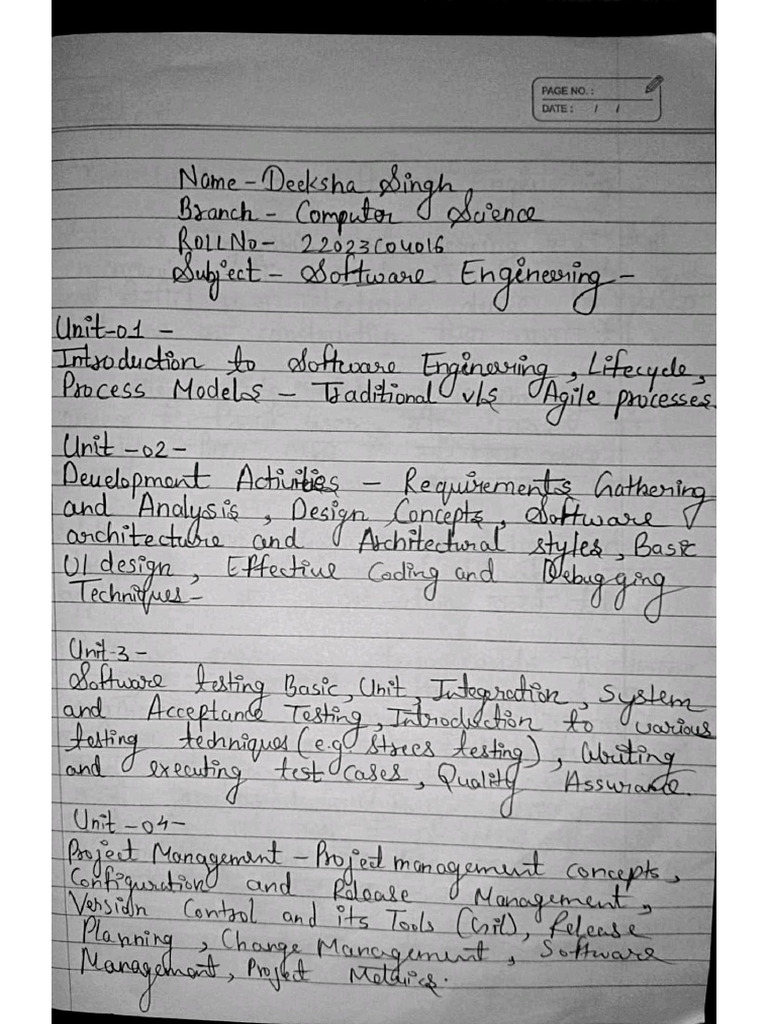 PAGE NO.:
DATE: / /
Name - Deeksha Singh
Branch - Computer Science
ROLL No - 22023C04016
Subject - Software Engineering -
Unit-01 -
Introduction to Software Engineering, Lifecycle,
Process Models - Traditional v/s Agile processes.
Unit-02-
Development Activities - Requirements Gathering
and Analysis, Design Concepts, Software
architecture and Architectural styles, Basic
UI design, Effective Coding and Debugging
Techniques-
Unit-3-
Software testing Basic, Unit, Integration, System
and Acceptance Testing, Introduction to various
testing techniques (e.g. strees testing), Writing
and executing test cases, Quality Assurance.
Unit-04-
Project Management - Project management concepts,
Configuration and Release Management,
Version Control and its Tools (Git), Release
Planning, Change Management, Software
Management, Project Metrics.